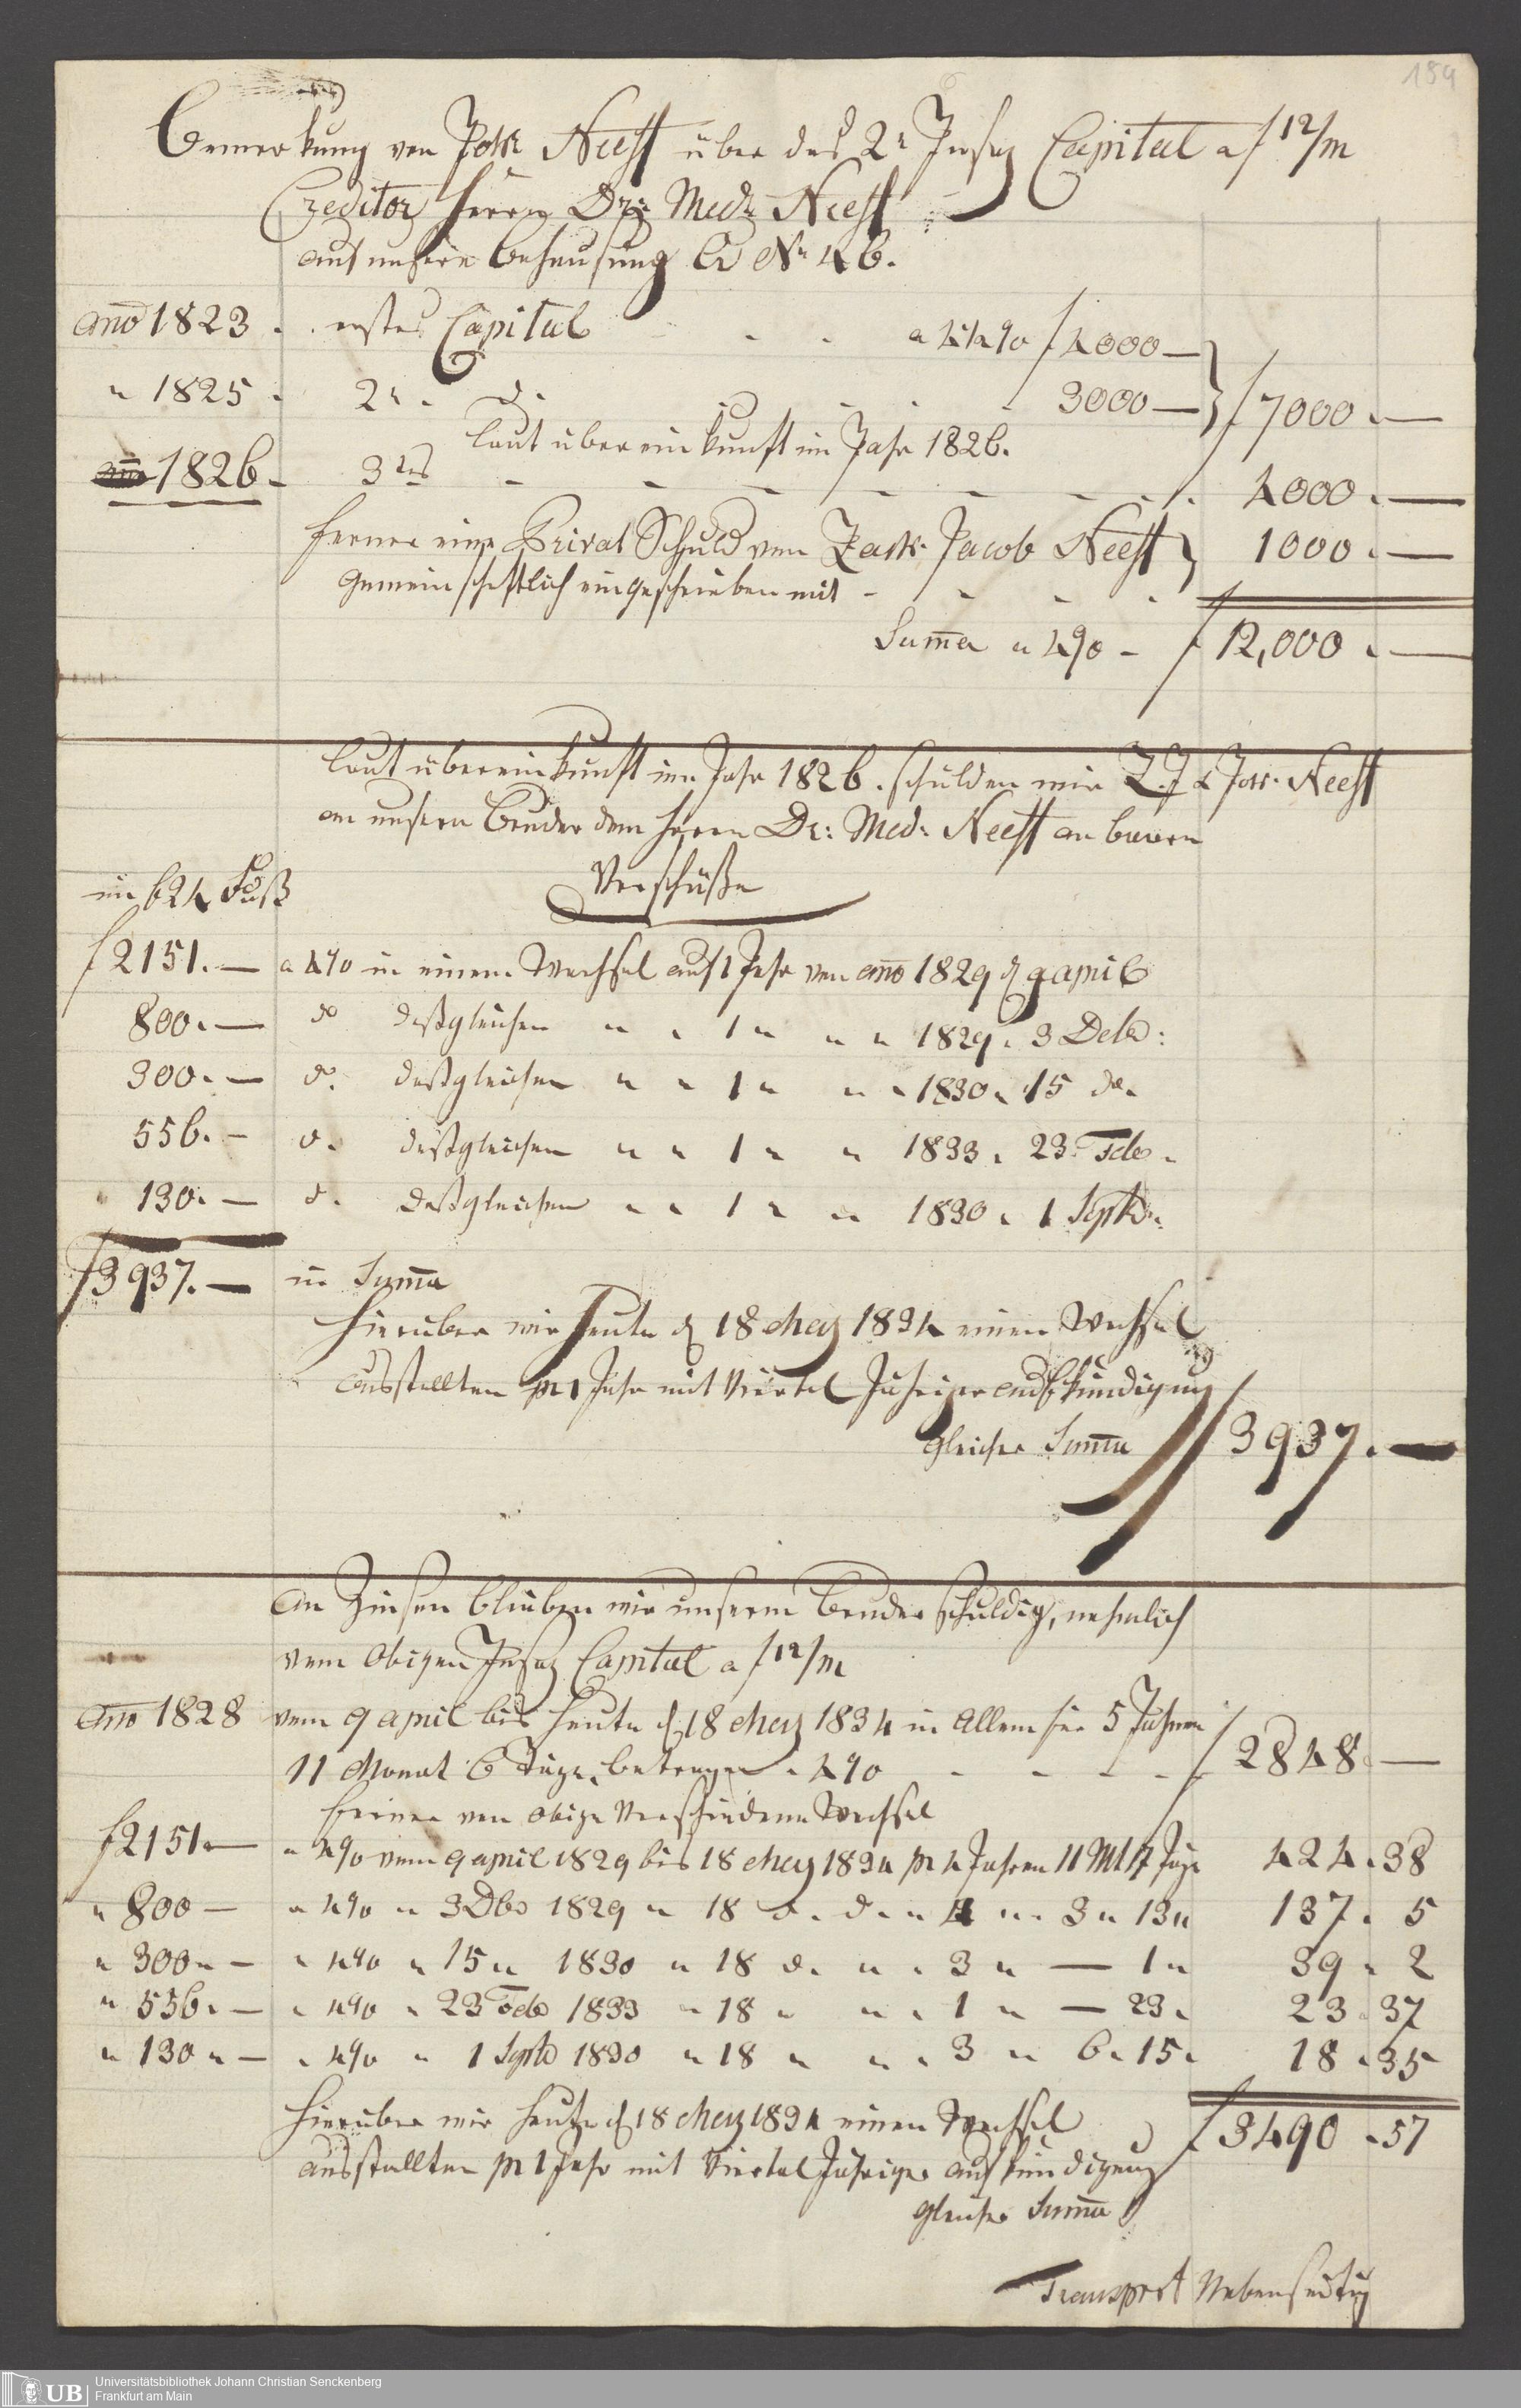 154
Bemerkung von Joh: Neeff über das 2r Insaz Capital a f 12/m
Creditor Herrn Dr: Med: Neeff
auf unsere Behausung No 46.
ano 1823 . . erstes Capital . . a 4 1/2 % f 4000 —
" 1825 . 2s . do . . . . 3000 — f 7000 . —
laut übereinkunft im Jahr 1826.
1826 . 3tes - - - - - - - 4000 . —
ferner eine Privat Schuld von Zach: Jacob Neeff 1000 . —
gemeinschaftlich eingeschrieben mit - - - -
Suma a 4 % - f 12,000 . —
laut übereinkunft im Jahr 1826 . schulden wir Z. J & Joh: Neeff
an unsern Bruder dem Herrn Dr: Med: Neeff an baaren
Vorschüße
im f 24 Fuß
f 2151. — a 4 % in einem Wechsel auf 1 Jahr von ano 1829 d 9 april
800. — do deßgleichen " " 1 " " " 1829 . 3 Decb:
300. — do. deßgleichen " " 1 " " " 1830 " 15 do.
556. — do. deßgleichen " " 1 " " 1833 . 23 Feb.
130. — do. deßgleichen " " 1 " " 1830 . 1 Septbr.
f 3937. — in Suma
hierüber wir heute d 18 Merz 1834 einen Wechsel
ausstellten pr 1 Jahr mit Viertel Jähriger aufkündigung
gleicher Suma f 3937. —
An Zinsen blieben wir unserm Bruder schuldig, nehmlich
vom obigen Insaz Capital a f 12/m
Ano 1828 vom 9 april bis heute d 18 Merz 1834 in allem für 5 Jahren
11 Monat 6 Tage, betragen a 4 % - - - - f 2848. —
ferner von obige Verschiedene Wechsel
f 2151. — a 4 % vom 9 april 1829 bis 18 Merz 1834 pr 4 Jahren 11 Mt 7 Tage 424 . 38
" 800 — " 4 % " 3 Dbr 1829 " 18 do. do. " 4 " " 3 " 13 " 137 . 5
" 300 " — " 4 % " 15 " 1830 " 18 do. " " 3 " — 1 " 39 " 2
" 556. — " 4 % " 23 Feb 1833 " 18 " " " 1 " — 23 " 23 . 37
" 130 " — " 4 % " 1 Septb 1830 " 18 " " " 3 " 6 " 15 " 18 . 35
hierüber wir heute d 18 Merz 1834 einen Wechsel f 3490 . 57
ausstellten pr 1 Jahr mit Viertel Jähriger aufkündigung
gleicher Suma
Transport Nebenseitig
UB Universitätsbibliothek Johann Christian Senckenberg
Frankfurt am Main